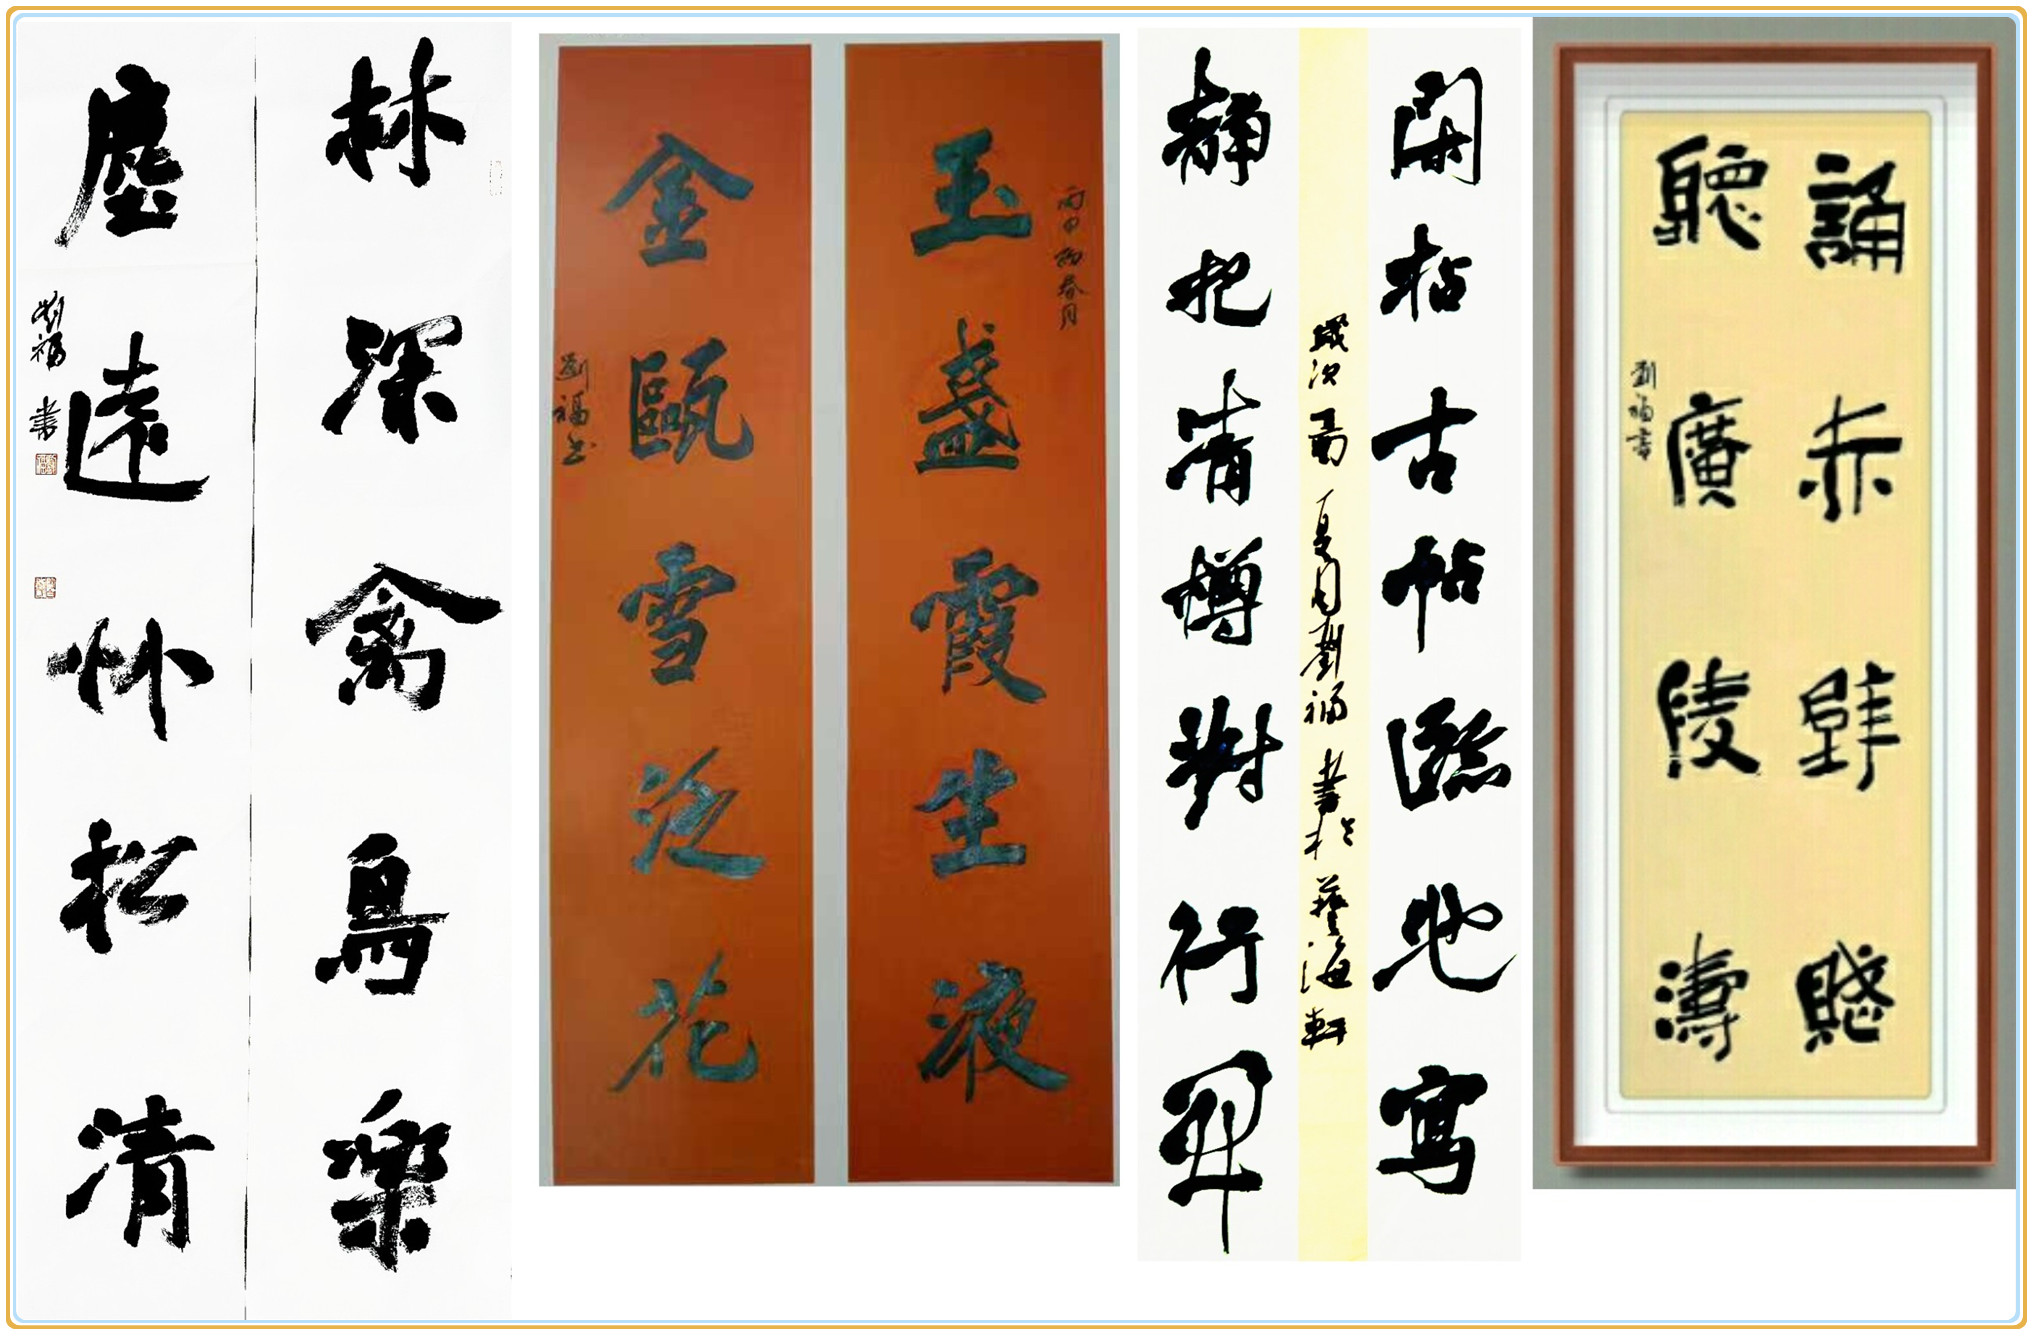 林深禽鳥樂
塵遠竹松清
劉福書
丙申初春月
玉盞霞生液
金甌雪泛花
劉福書
閑拈古帖臨池寫
靜把清樽對竹開
歲次夏月劉福書於藝海軒
誦赤壁賦
聽廣陵濤
劉福書